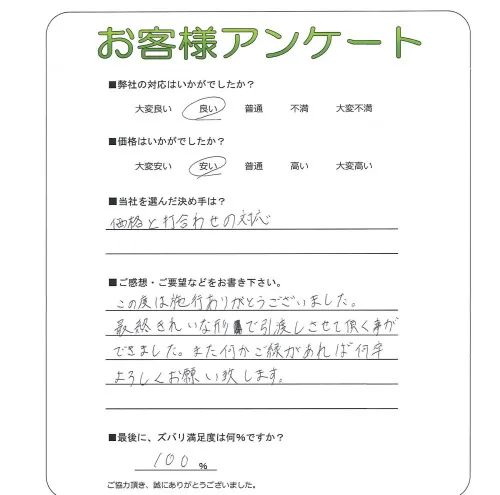 お客様アンケート
■弊社の対応はいかがでしたか？
大変良い 良い 普通 不満 大変不満
■価格はいかがでしたか？
大変安い 安い 普通 高い 大変高い
■当社を選んだ決め手は？
価格と打合わせの対応
■ご感想・ご要望などをお書き下さい。
この度は施行ありがとうございました。
最終きれいな形で引渡しさせて頂く事が
できました。また何かご縁があれば何卒
よろしくお願い致します。
■最後に、ズバリ満足度は何%ですか？
100 %
ご協力頂き、誠にありがとうございました。